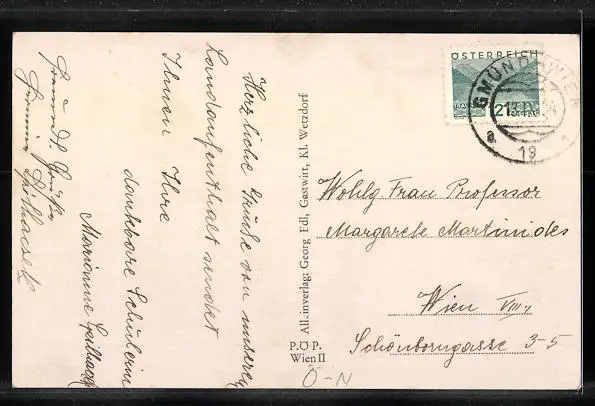 Herzliche Grüße von unserem
Landaufenthalt sendet
Ihnen Ihre
dankbare Schülerin
Marianne
Alleinverlag: Georg Edl, Gastwirt, Kl. Wetzdorf
P.Ö P.
Wien II
ÖSTERREICH
GMÜND WIEN
Wohlg Frau Professor
Margarete Martinides
Wien VIII.
Schönborngasse 3-5
Ö-N